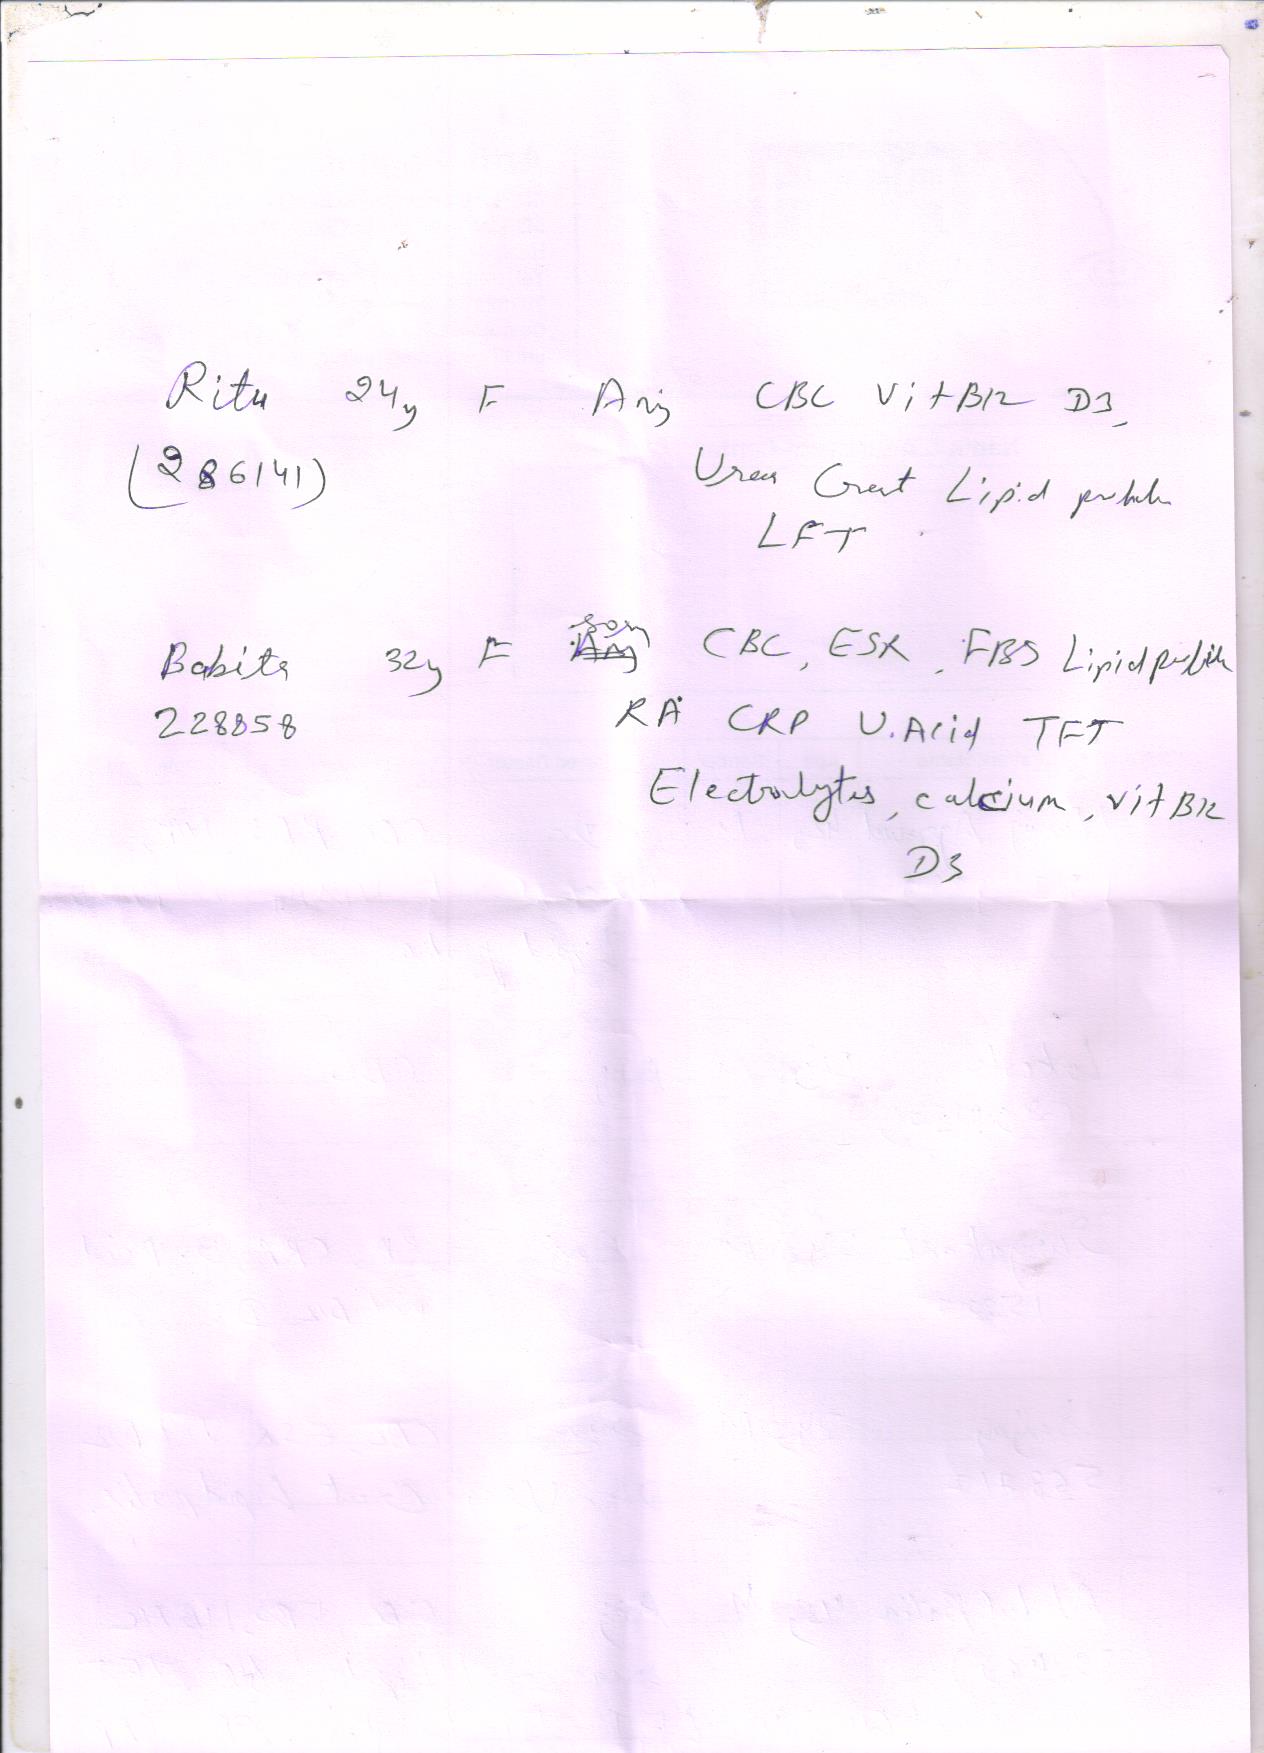 Ritu 24y F Arij CBC Vit B12 D3,
(286141) Urea Creat Lipid profile
LFT
Babita 32y F CBC, ESR, FBS Lipid profile
228858 RA CRP U.Acid TFT
Electrolytes, calcium, vit B12
D3